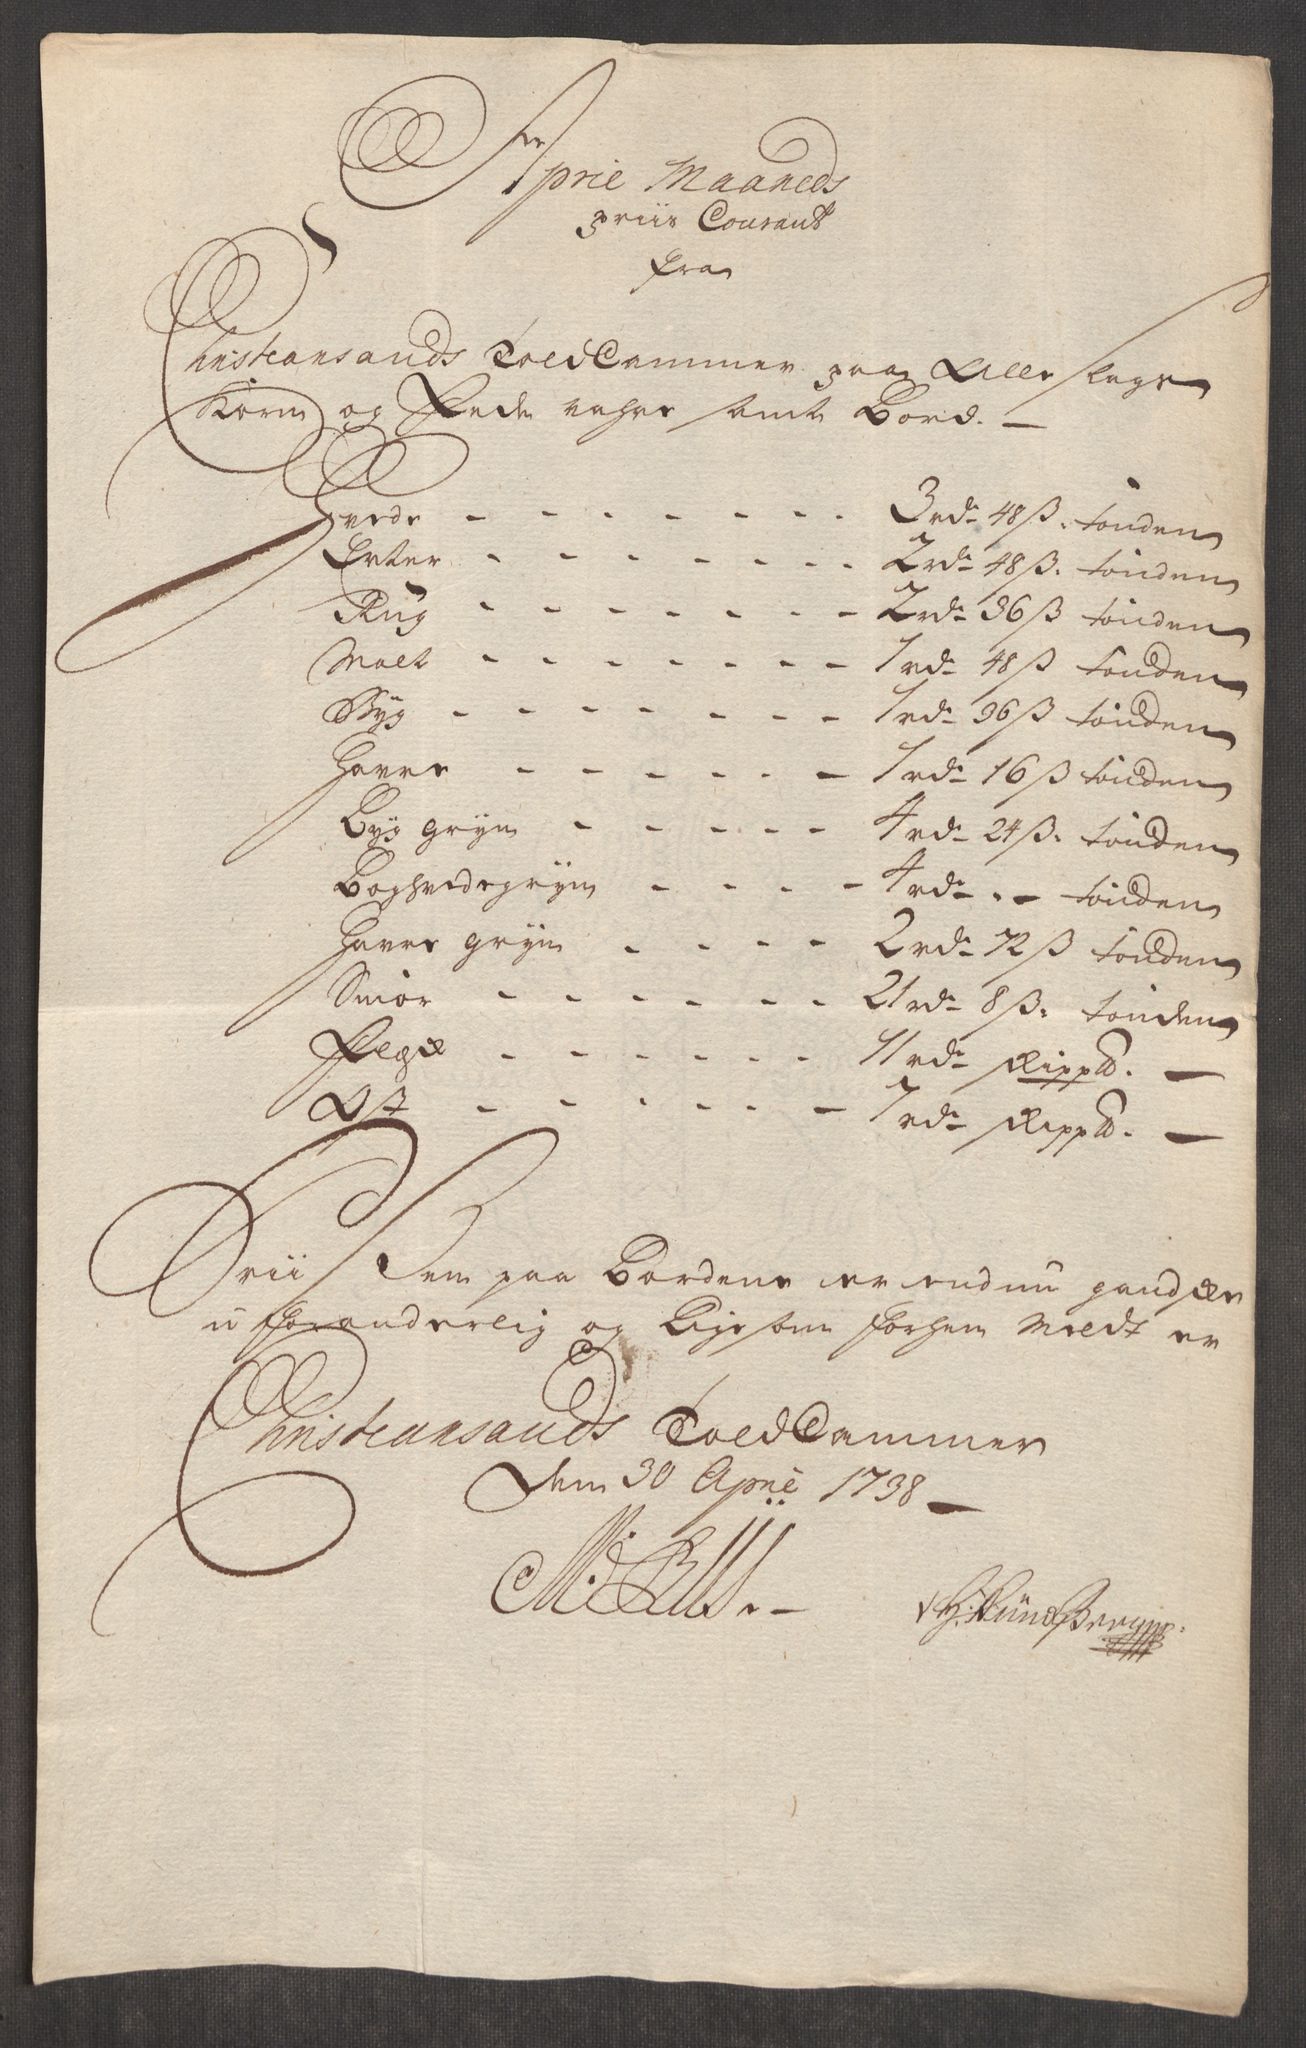 April Maaneds
priis Courant
fra
Christiansands ToldCammer paa Alle slags
Korn og Fede vahrer samt Bord. —
Hvede - - - - - - - 3 rd 48 ß. tønden
Erter - - - - - - - 2 rd 48 ß. tønden
Rug - - - - - - - 2 rd 36 ß tønden
Malt - - - - - - - 1 rd 48 ß tønden
Byg - - - - - - - 1 rd 36 ß tønden
Havre - - - - - - 1 rd 16 ß tønden
Byg gryn - - - - - 4 rd 24 ß. tønden
Boghvede gryn - - - - 4 rd . — tønden
Havre gryn - - - - 2 rd 72 ß tønden
Smør - - - - - - 21 rd 8 ß. tønden
Flesk - - - - - - 11 rd skippd. —
Ost - - - - - - 7 rd skippd. —
Priisen paa Bordene er endnu gandske
uforanderlig og Ligesom forhen Meldt er
Christiansands ToldCammer
den 30 April 1738 —